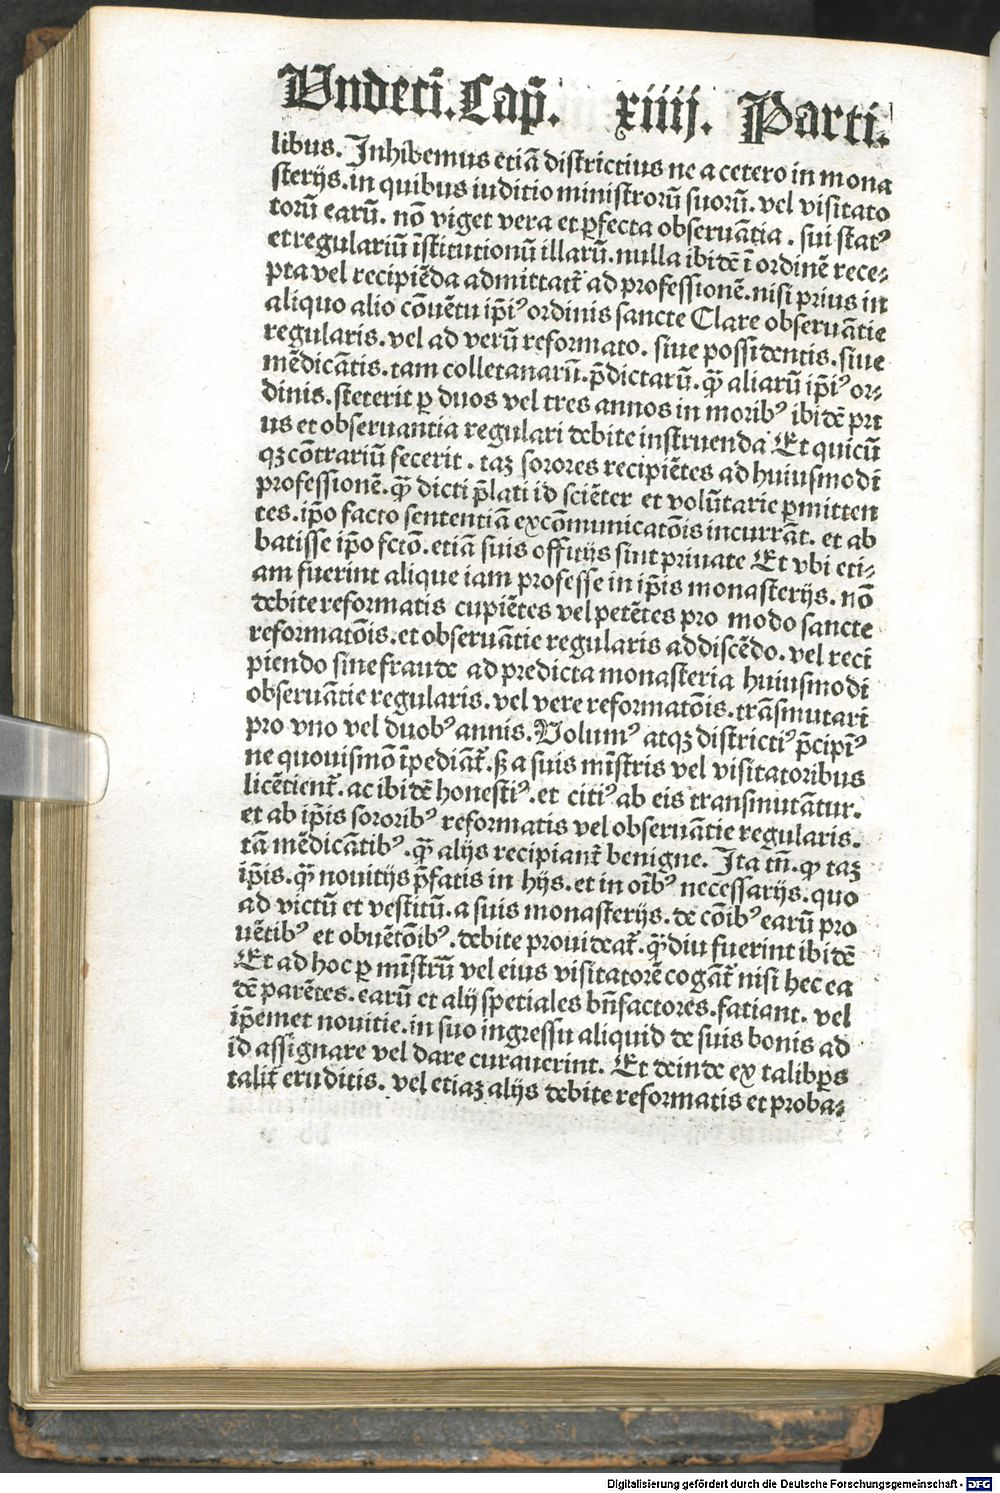 Undeci̅. Cap̅. xiiij. Parti.
libus. Inhibemus etiā districtius ne a cetero in mona
sterijs. in quibus iuditio ministrorū suorū. vel visitato
torū earū. nō viget vera et ꝑfecta obseruātia. sui statꝰ
et regulariū īstitutionū illarū. nulla ibidē ī ordinē rece⸗
pta vel recipiēda admittat᷑ ad professionē. nisi prius in
aliquo alio cōuētu ip̄iꝰ ordinis sancte Clare obseruātie
regularis. vel ad verū reformato. siue possidentis. siue
mēdicātis. tam colletanarū. p̄dictarū. q̄ꝫ aliarū ip̄iꝰ or⸗
dinis. steterit ꝑ duos vel tres annos in moribꝰ ibidē pri
us et obseruantia regulari debite instruenda Et quicū
qꝫ cōtrariū fecerit. taꝫ sorores recipiētes ad huiusmodi
professionē. q̄ꝫ dicti p̄lati id sciēter et volūtarie ꝑmitten
tes. ip̄o facto sententiā excōmunicatōis incurrāt. et ab
batisse ip̄o fctō. etiā suis offitijs sint priuate Et vbi eti⸗
am fuerint alique iam professe in ip̄is monasterijs. nō
debite reformatis cupiētes vel petētes pro modo sancte
reformatōis. et obseruātie regularis addiscēdo. vel reci
piendo sine fraude ad predicta monasteria huiusmodi
obseruātie regularis. vel vere reformatōis. trāsmutari
pro vno vel duobꝰ annis. Volumꝰ atqꝫ districtiꝰ p̄cipīꝰ
ne quouismō īpediāt᷑. sꝫ a suis mīstris vel visitatoribus
licētient᷑. ac ibidē honestiꝰ. et citiꝰ ab eis transmutātur.
et ab ip̄is sororibꝰ reformatis vel obseruātie regularis.
tā mēdicātibꝰ. q̄ꝫ alijs recipiant᷑ benigne. Ita tn̄. ꝙ taꝫ
ip̄is. q̄ꝫ nouitijs p̄fatis in hijs. et in oībꝰ necessarijs. quo
ad victū et vestitū. a suis monasterijs. de cōibꝰ earū pro
uētibꝰ et obuētōibꝰ. debite prouideat᷑. q̄ꝫdiu fuerint ibidē
Et ad hoc ꝑ mīstrū vel eius visitatorē cogāt᷑ nisi hec ea
dē parētes. earū et alij spetiales bn̄factores. fatiant. vel
ip̄emet nouitie. in suo ingressu aliquid de suis bonis ad
id assignare vel dare curauerint. Et deinde ex talib ꝑs
talit᷑ eruditis. vel etiaꝫ alijs debite reformatis et proba⸗
Digitalisierung gefördert durch die Deutsche Forschungsgemeinschaft - DFG